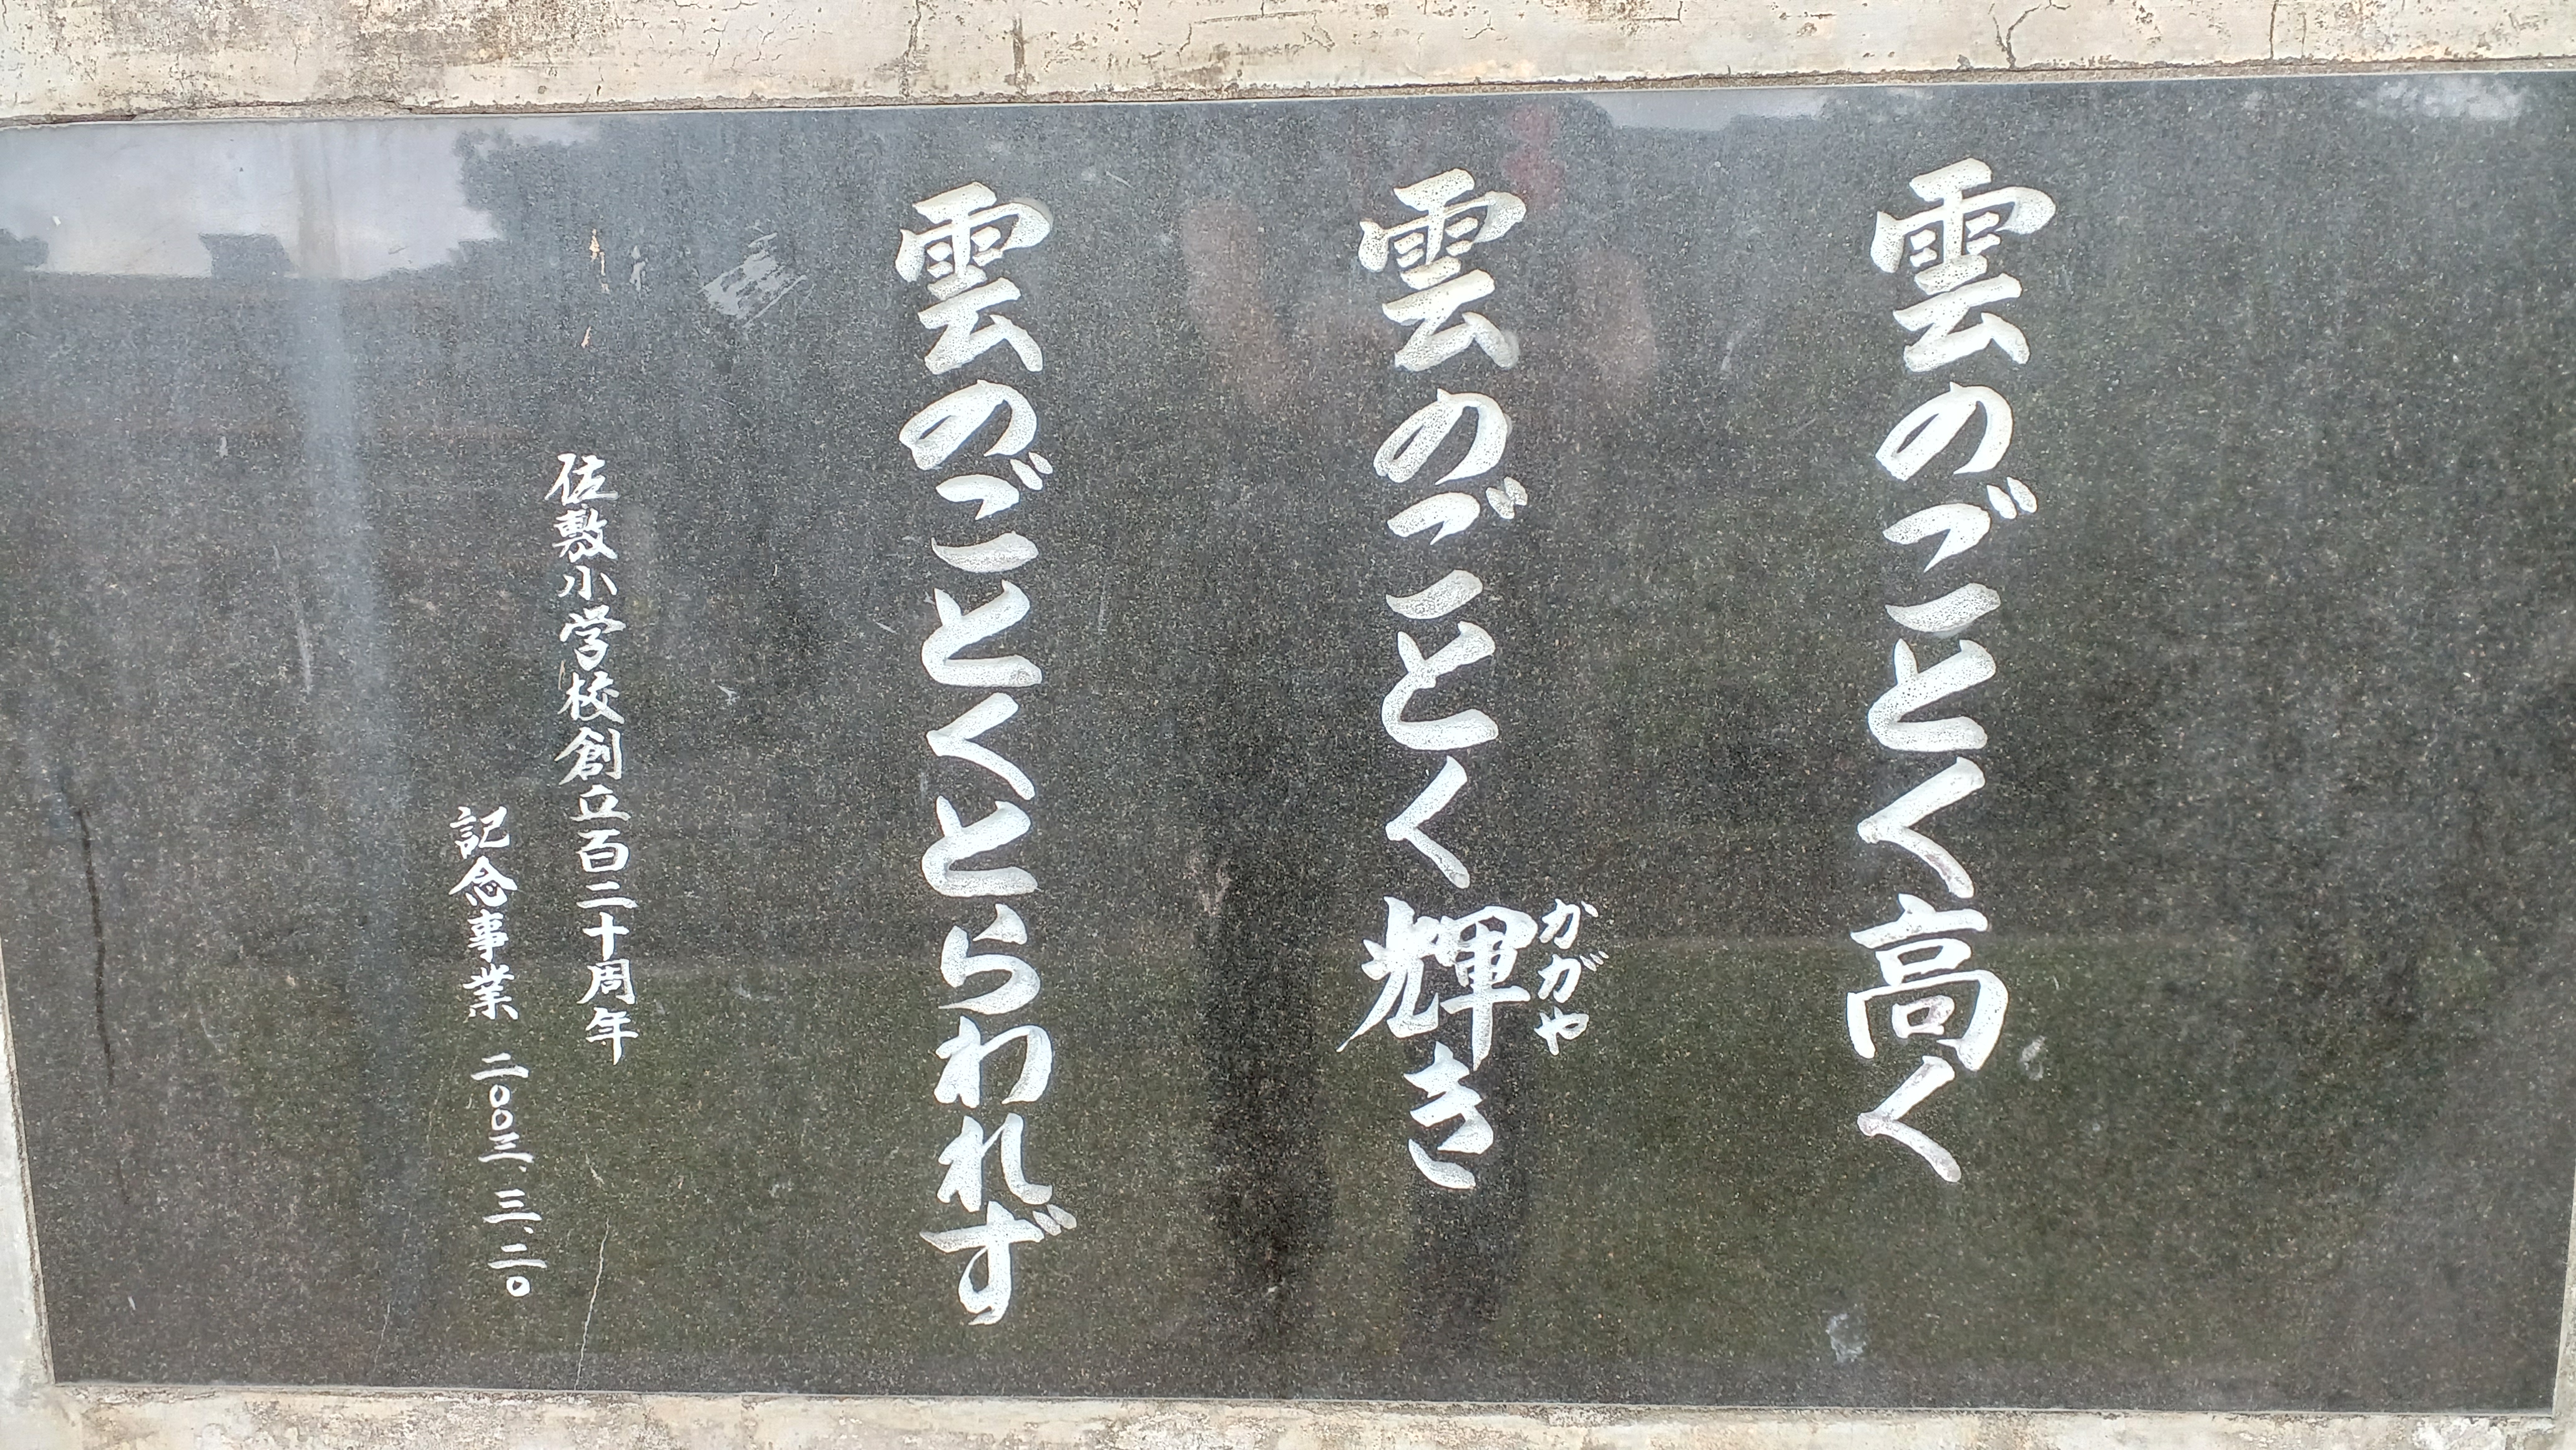 雲のごとく高く
雲のごとく輝き
かがや
雲のごとくとらわれず
佐敷小学校創立百二十周年
記念事業 二〇〇三.三.二〇